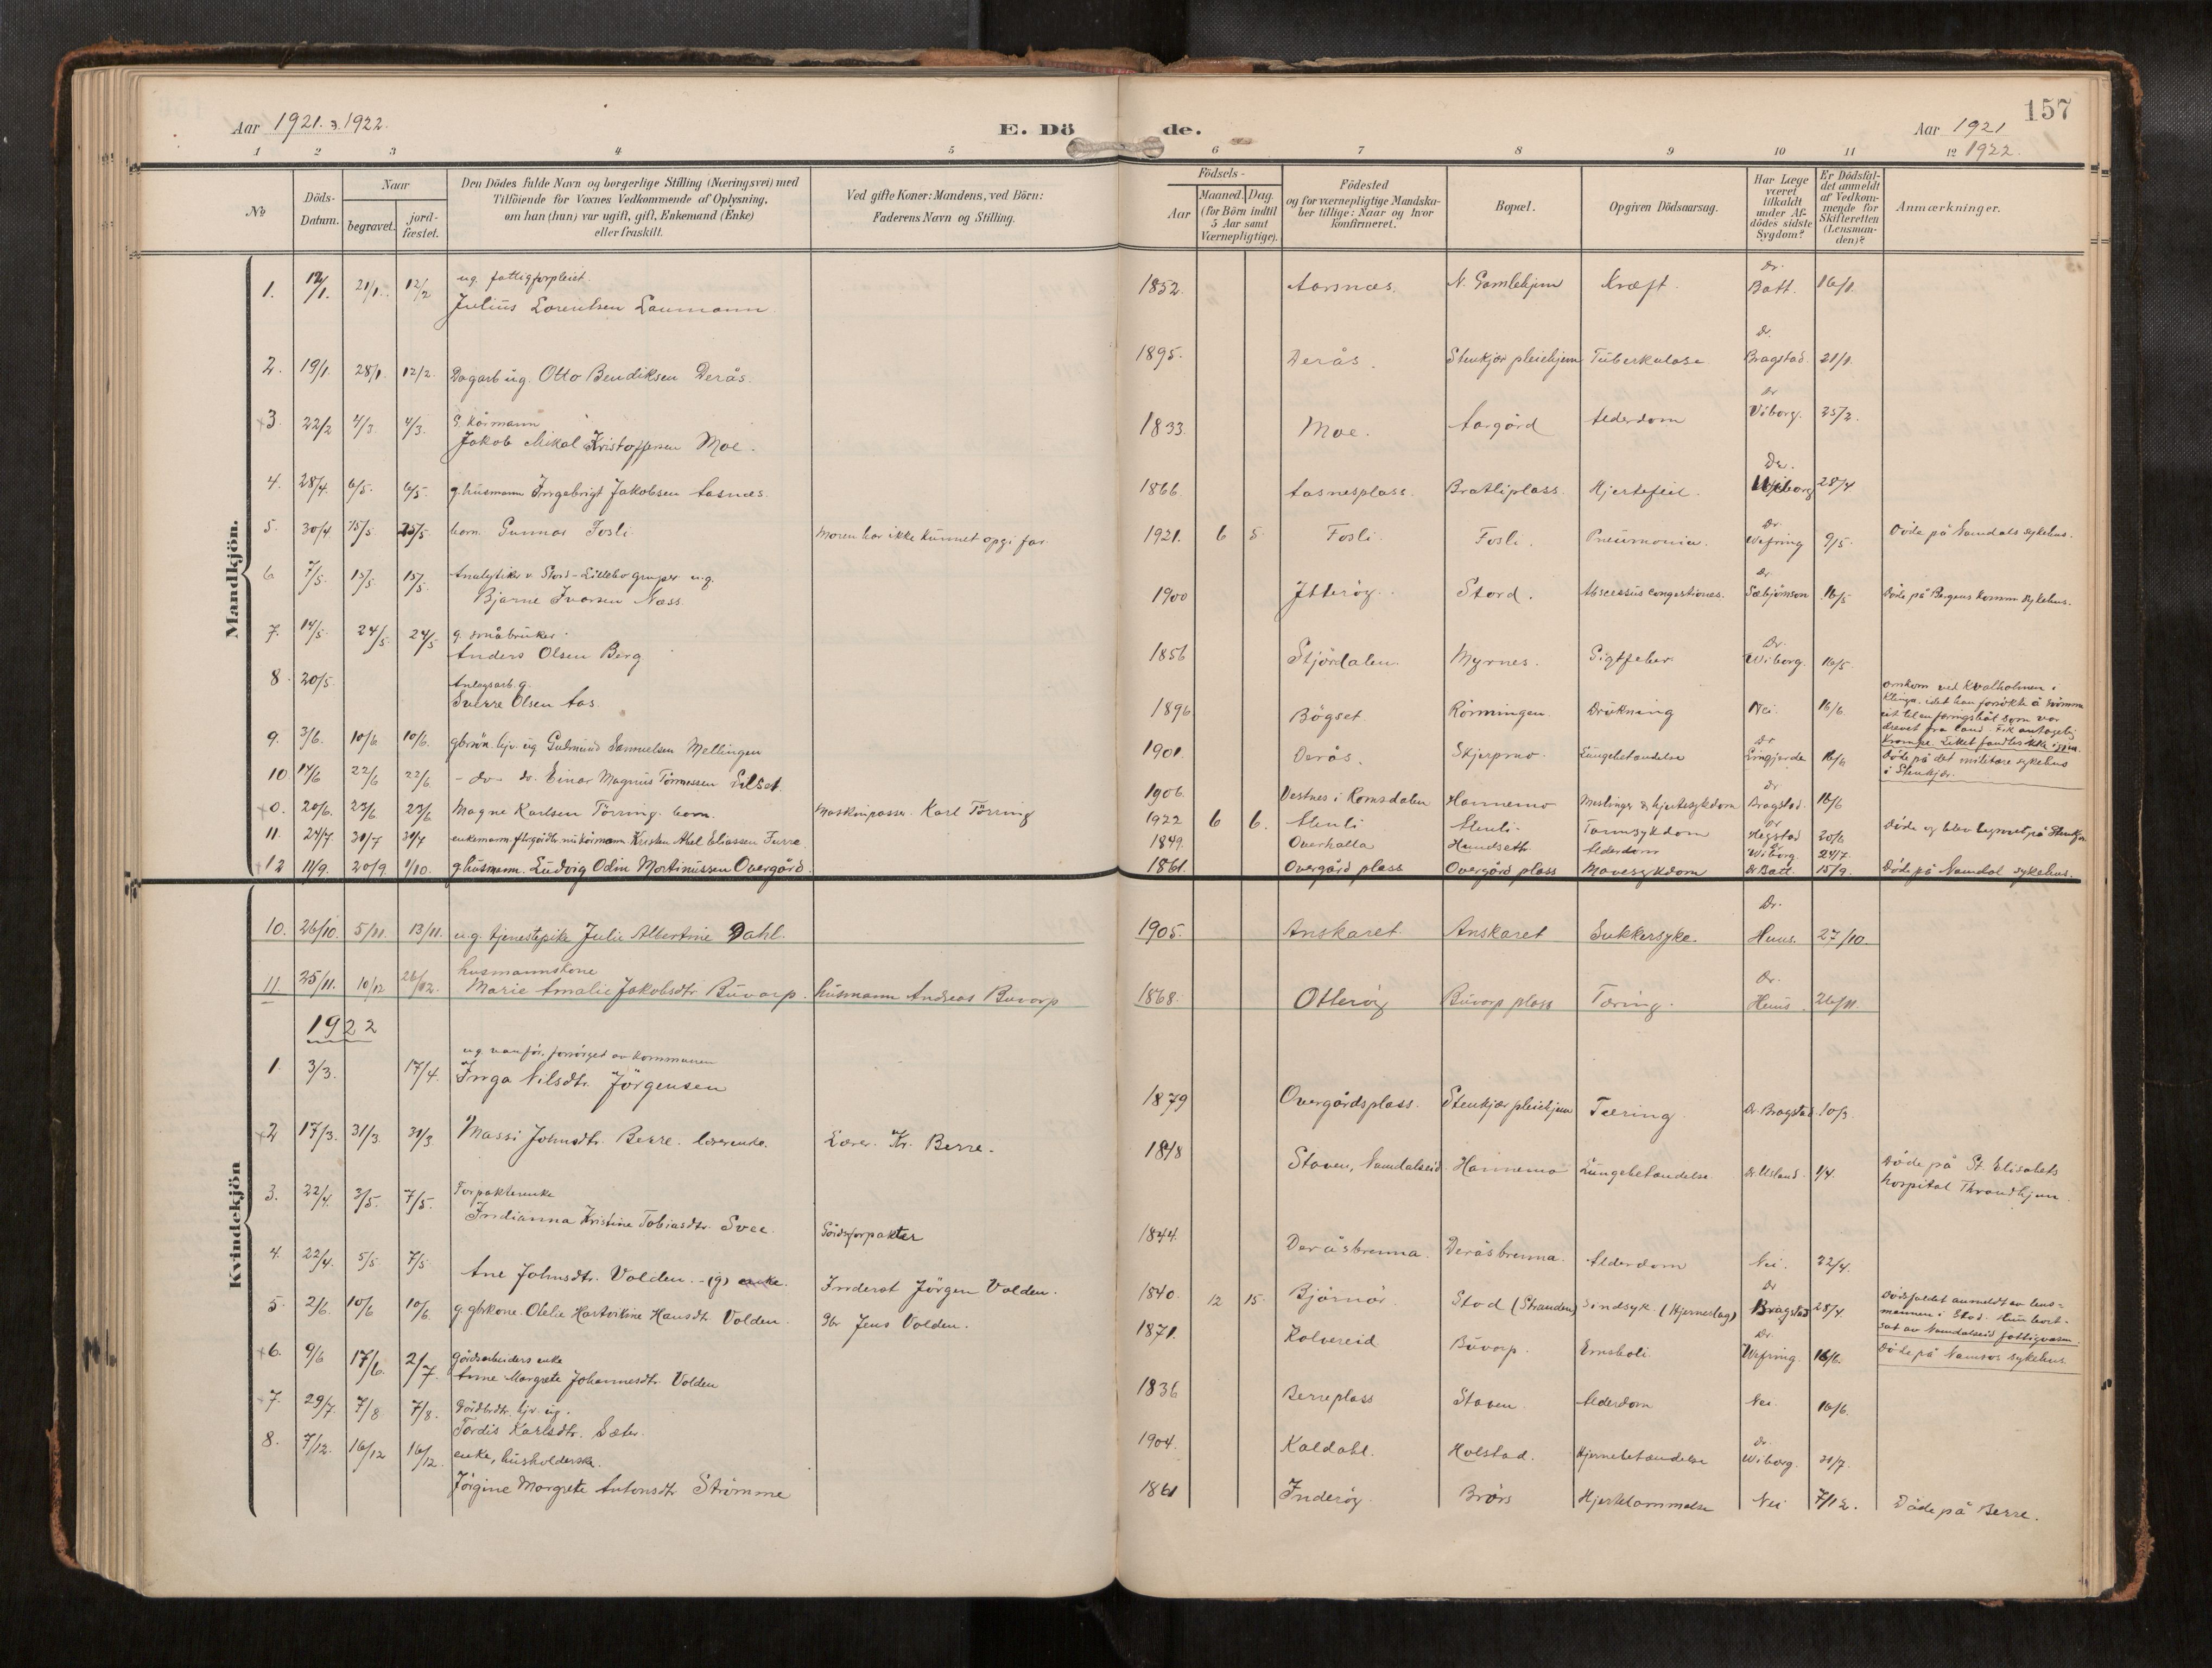 157
Aar 1921. 3. 1922.
E. Dö de.
Aar 1921
1922.
1 2 3 4 5 6 7 8 9 10 11 12
№
Döds-
Datum.
Naar
begravet.
jord-
fæstet.
Den Dödes fulde Navn og borgerlige Stilling (Næringsvei) med
Tilföiende for Voxnes Vedkommende af Oplysning,
om han (hun) var ugift, gift, Enkemand (Enke)
eller fraskilt.
Ved gifte Koner: Mandens, ved Börn:
Faderens Navn og Stilling.
Födsels-
Aar
Maaned. Dag.
(for Börn indtil
5 Aar samt
Værnepligtige).
Födested
og for værnepligtige Mandska-
ber tillige: Naar og hvor
konfirmeret.
Bopæl.
Opgiven Dödsaarsag.
Har Læge
været
tilkaldt
under Af-
dödes sidste
Sygdom?
Er Dödsfal-
det anmeldt
af Vedkom-
mende for
Skifteretten
(Lensman-
den)?
Anmærkninger.
Mandkjön.
1. 12/1. 21/1. 12/2 ug. fattigforpleiet.
Julius Lorentsen Laumann 1852. Aarsnæs. N. Gamlehjem Kræft. Dr. Batt. 16/1.
2. 19/1. 28/1. 12/2. Dagarb ug. Otto Bendiksen Derås. 1895. Derås. Stenkjær pleiehjem Tuberkulose Dr. Bragstad. 21/1.
3. 22/2 4/3 4/3. G. kårmann
Jakob Mikal Kristoffersen Moe. 1833. Moe. Aargård Alderdom Dr Viborg. 25/2.
4. 28/4. 6/5. 6/5. g. husmann Ingebrigt Jakobsen Aasnes. 1866. Aasnesplass. Bratliplass Hjertefeil. Dr. Wiborg 28/4
5. 30/4. 15/5. 25/5 barn. Gunnar Fosli. Moren har ikke kunnet opgi far. 1921. 6 5. Fosli. Fosli. Pneumonia. Dr. Wefring 9/5. Döde på Namdals sykehus.
6 7/5. 15/5. 15/5. Analytiker v. Stord-Lillebo gruper ug.
Bjarne Ivarsen Næss. 1900 Ytteröy. Stord. Abscessus congestiones. Dr. Sæbjörnson 16/5 Döde på Bergens komm. sykehus.
7. 14/5. 24/5. 24/5 g. småbruker.
Anders Olsen Berg 1856 Stjördalen. Myrnes. Gigtfeber. Dr. Wiborg. 16/5.
8. 20/5. Anlegsarb. g.
Sverre Olsen Aas. 1896 Bögset. Römningen Drukning Nei. 16/6. omkom ved Kvalholmen i
Klinga, idet han forsökte å svömme
ut til en færingsbåt som var
drevet fra land. Fik antagelig
krampe. Liket fandtes ikke igjen.
9. 3/6. 10/6 10/6. gbrsön. hjv. ug Gudmund Samuelsen Mellingen 1901. Derås. Skjerpmo. Lungebetændelse Dr Lingjerde 16/6 Döde på det militære sykehus
i Stenkjær.
10 14/6 22/6 22/6. - do - do. Einar Magnus Tormessen Selset. 1906. Vestnes i Romsdalen Hannemo Meslinger & hjertesykdom Dr Bragstad. 16/6
0. 20/6. 23/6 23/6 Magne Karlsen Törring. barn. Maskinpasser. Karl Törring 1922 6 6. Alenli Alenli. Tarmsykdom Dr Hegstad 20/6 Döde og blev begravet på Stenkjær.
11. 24/7. 31/7 31/7 enkemann, kårmann Kristen Abel Eliassen Furre. 1849. Overhalla Hundseth. Alderdom Dr Wiborg. 24/7.
12 11/9. 20/9. 1/10. g husmann. Ludvig Odin Martinussen Overgård. 1861. Overgård plass Overgård plass Mavesykdom Dr Batt. 15/9. Döde på Namdal sykehus.
Kvindekjön
10. 26/10. 5/11. 13/11. u.g. tjenestepike Julie Albertine Dahl. 1905. Anskaret. Anskaret Sukkersyke. Dr. Huus. 27/10.
11. 25/11. 10/12 26/12. husmannskone
Marie Amalie Jakobsdtr. Buvarp. husmann Andreas Buvarp 1868. Otteröy Buvarp plass Tæring. Dr. Huus. 26/11.
1922
1. 3/3. 17/4. ug. vanför, forsörget av kommunen
Inga Nilsdtr. Jörgensen 1879 Overgårdsplass. Stenkjær pleiehjem Tæring Dr. Bragstad. 10/3.
2 17/3. 31/3. 31/3 Massi Johnsdtr. Berre. lærerenke. Lærer. Kr. Berre. 1848 Staven, Namdalseid Hannemo Lungebetændelse Dr. Usland. 1/4. Döde på St. Elisabets
hospital Throndhjem.
3. 22/4. 3/5. 7/5. Forpakterenke
Indianna Kristine Tobiasdtr. Svee. Gårdsforpakter 1844. Deråsbrenna. Deråsbrenna. Alderdom Nei. 22/4.
4. 22/4. 5/5 7/5 Ane Johnsdtr. Volden. - (g) enke. Inderst Jörgen Volden. 1840. 12 15. Björnör Stod (Stranden) Sindsyk. (Hjerneslag) Dr Bragstad 28/4. Dödsfaldet anmeldt av lens-
mannen i Stod. Hun bort-
sat av Namdalseid fattigvæsen.
5. 2/6. 10/6 10/6. g. gbkone. Oletie Hansdtr Volden. Gbr Jens Volden. 1871. Kolvereid Buvarp. Emboli. Dr. Wefring. 16/6. Döde på Namsos sykehus.
6. 9/6 17/6. 2/7. Gårdsarbeiders enke
Anne Margrete Johannesdtr. Volden 1836 Berreplass Staven. Alderdom Nei. 16/6.
7. 29/7. 7/8 7/8. Gårdbrdtr. hjv. ug.
Tordis Karlsdtr. Sæter. 1904. Kaldahl. Holstad. Hjernebetændelse Dr. Wiborg. 31/7.
8. 7/12. 16/12 16/12. enke, husholderske.
Jörgine Margrete Antonsdtr Strömme 1861 Inderöy Brörs Hjertelammelse Nei 7/12. Döde på Berre.